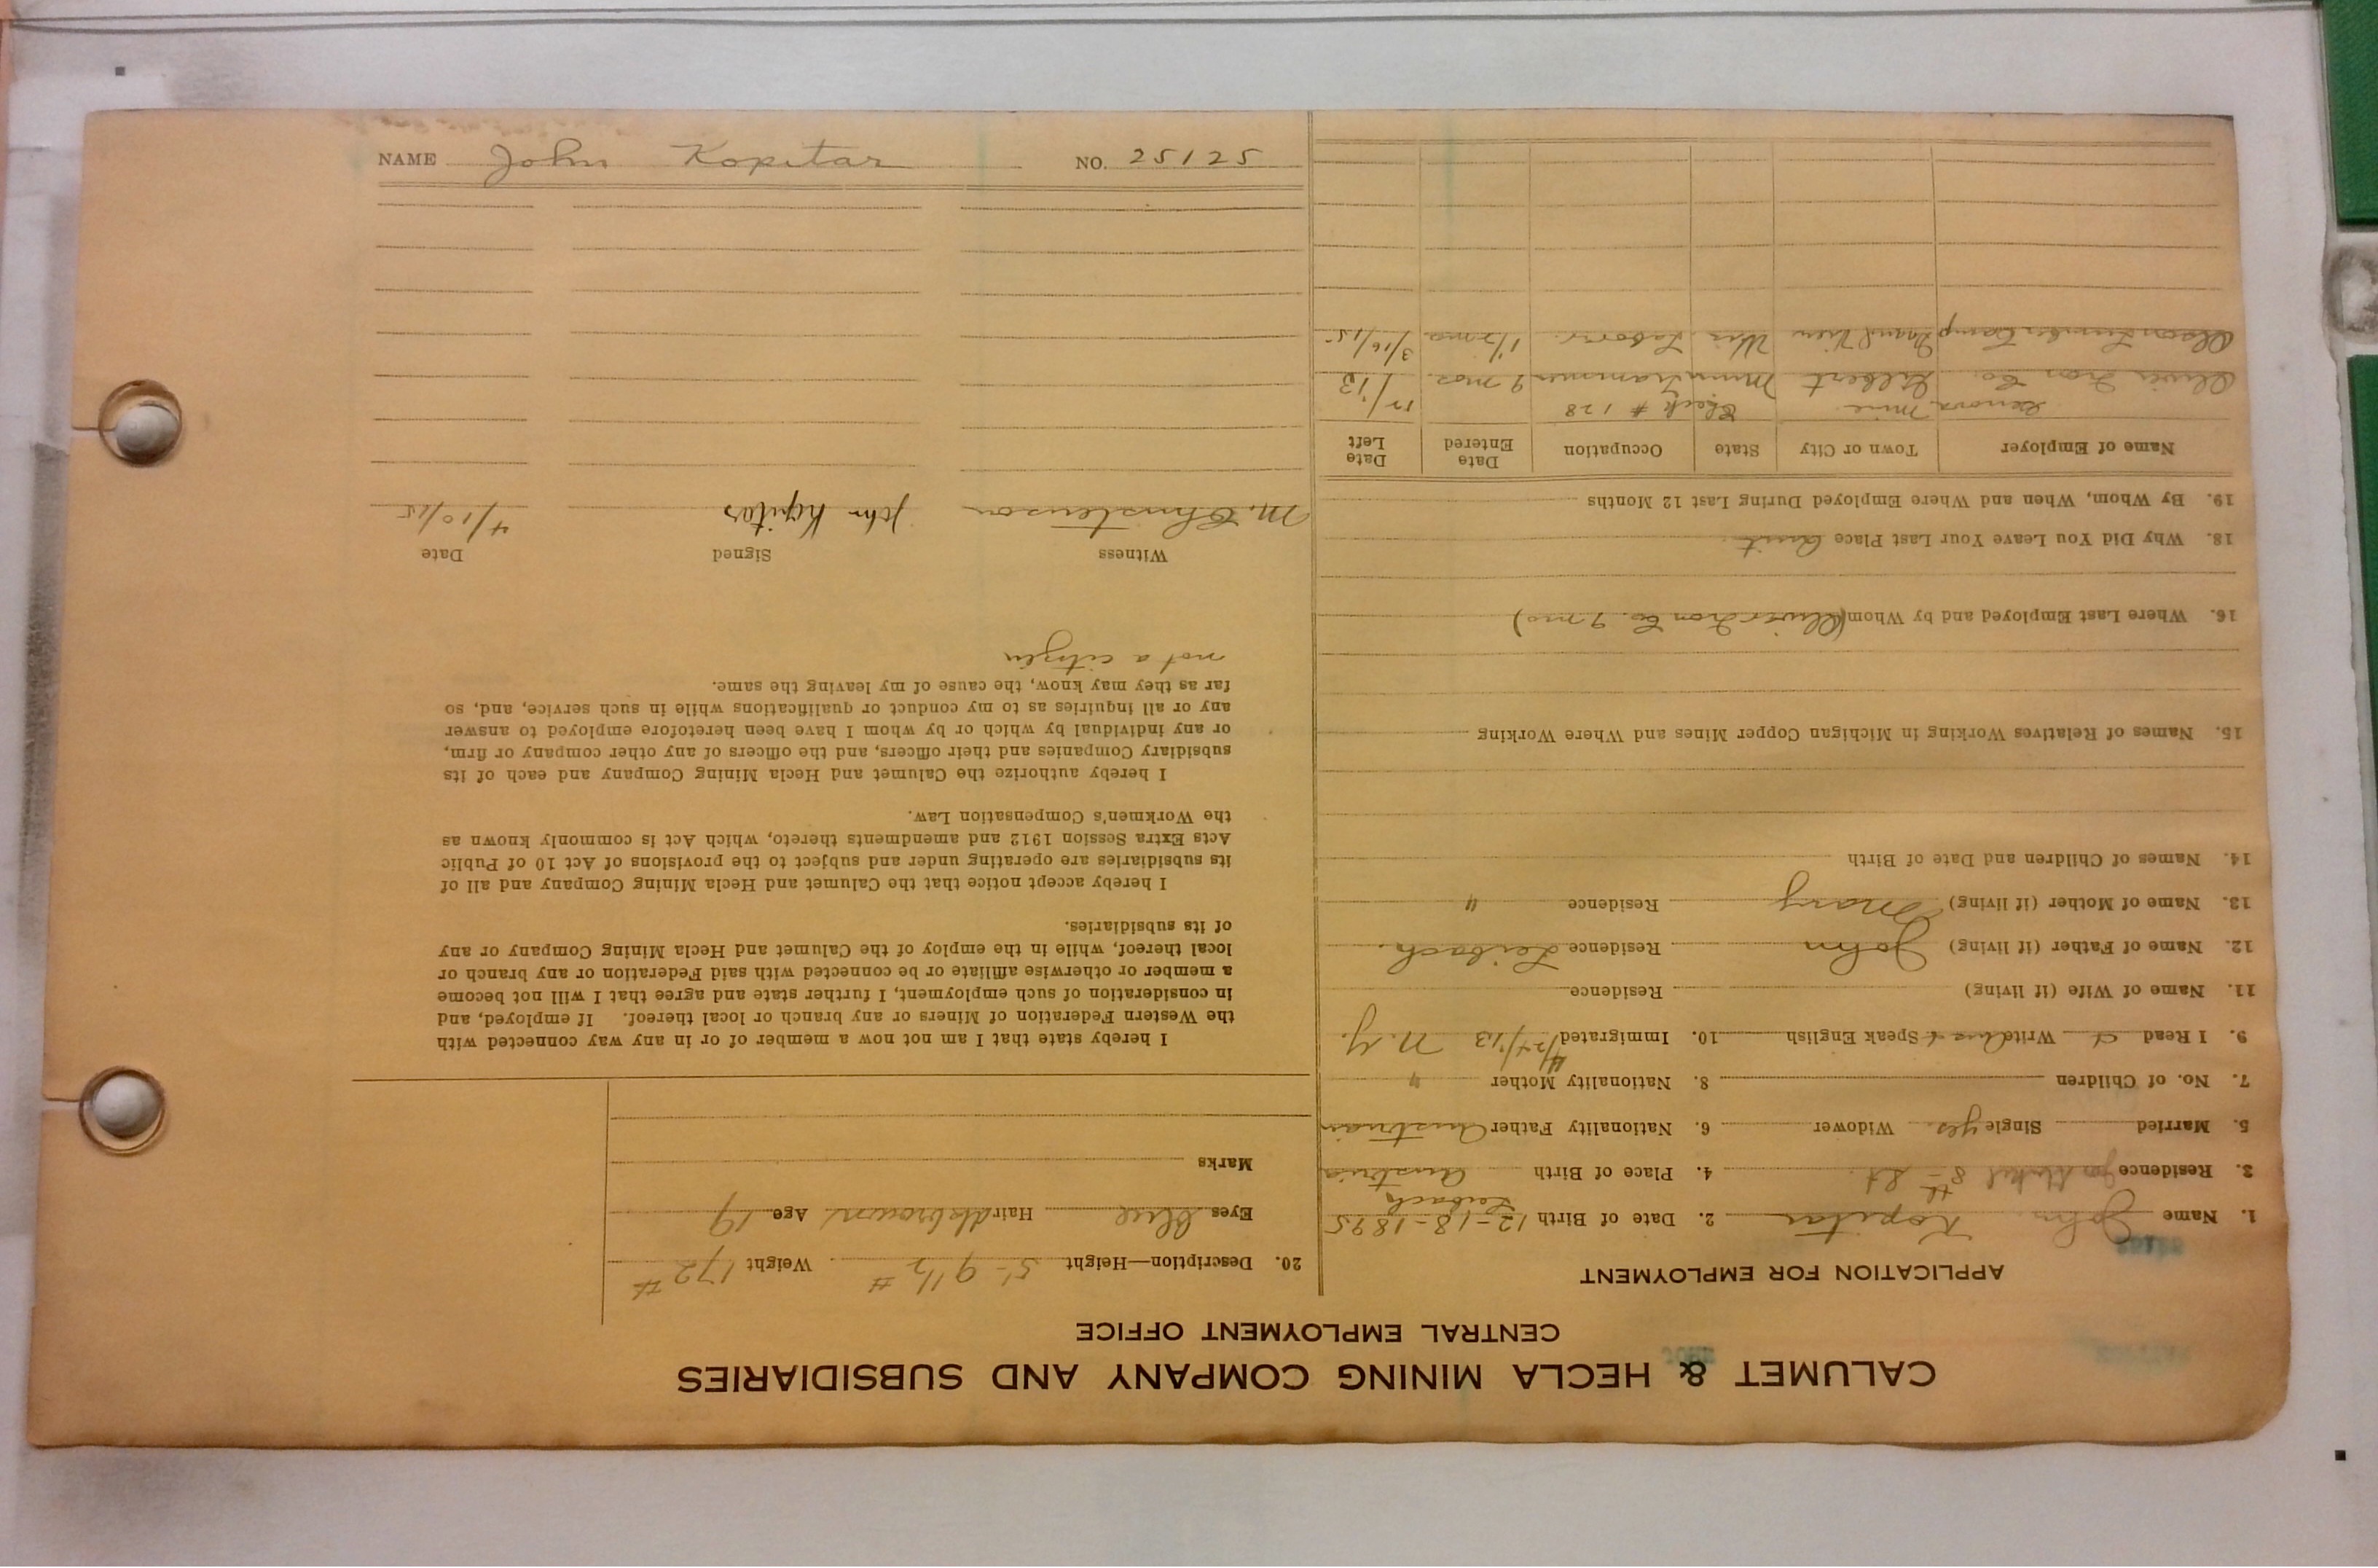 CALUMET & HECLA MINING COMPANY AND SUBSIDIARIES
CENTRAL EMPLOYMENT OFFICE
APPLICATION FOR EMPLOYMENT
1. Name John Kopitar 2. Date of Birth 12-18-1895
Leibach
3. Residence 8th St 4. Place of Birth Austria
5. Married Single yes. Widower 6. Nationality Father Austrian
7. No. of Children 8. Nationality Mother "
9. I Read Write Speak English 10. Immigrated 4/24/13 N.Y.
11. Name of Wife (if living) Residence
12. Name of Father (if living) John Residence Leibach.
13. Name of Mother (if living) Mary Residence "
14. Names of Children and Date of Birth
15. Names of Relatives Working in Michigan Copper Mines and Where Working
16. Where Last Employed and by Whom (Oliver Iron Co. 9 mo)
18. Why Did You Leave Your Last Place Quit
19. By Whom, When and Where Employed During Last 12 Months
Name of Employer Town or City State Occupation Date Entered Date Left
Genoa Mine Check # 128
Oliver Iron Co. Gilbert Minn Trammer 9 mos. 12/13
Olson Lumber Camp Grand View Wis Laborer 1 1/2 mo 3/16/15
20. Description—Height 5'-9 1/2" Weight 172#
Eyes Blue Hair dk brown Age 19
Marks
I hereby state that I am not now a member of or in any way connected with
the Western Federation of Miners or any branch or local thereof. If employed, and
in consideration of such employment, I further state and agree that I will not become
a member or otherwise affiliate or be connected with said Federation or any branch or
local thereof, while in the employ of the Calumet and Hecla Mining Company or any
of its subsidiaries.
I hereby accept notice that the Calumet and Hecla Mining Company and all of
its subsidiaries are operating under and subject to the provisions of Act 10 of Public
Acts Extra Session 1912 and amendments thereto, which Act is commonly known as
the Workmen's Compensation Law.
I hereby authorize the Calumet and Hecla Mining Company and each of its
subsidiary Companies and their officers, and the officers of any other company or firm,
or any individual by which or by whom I have been heretofore employed to answer
any or all inquiries as to my conduct or qualifications while in such service, and, so
far as they may know, the cause of my leaving the same.
not a citizen
Witness Signed Date
M. Christenson John Kopitar 4/10/15
NAME John Kopitar NO. 25125